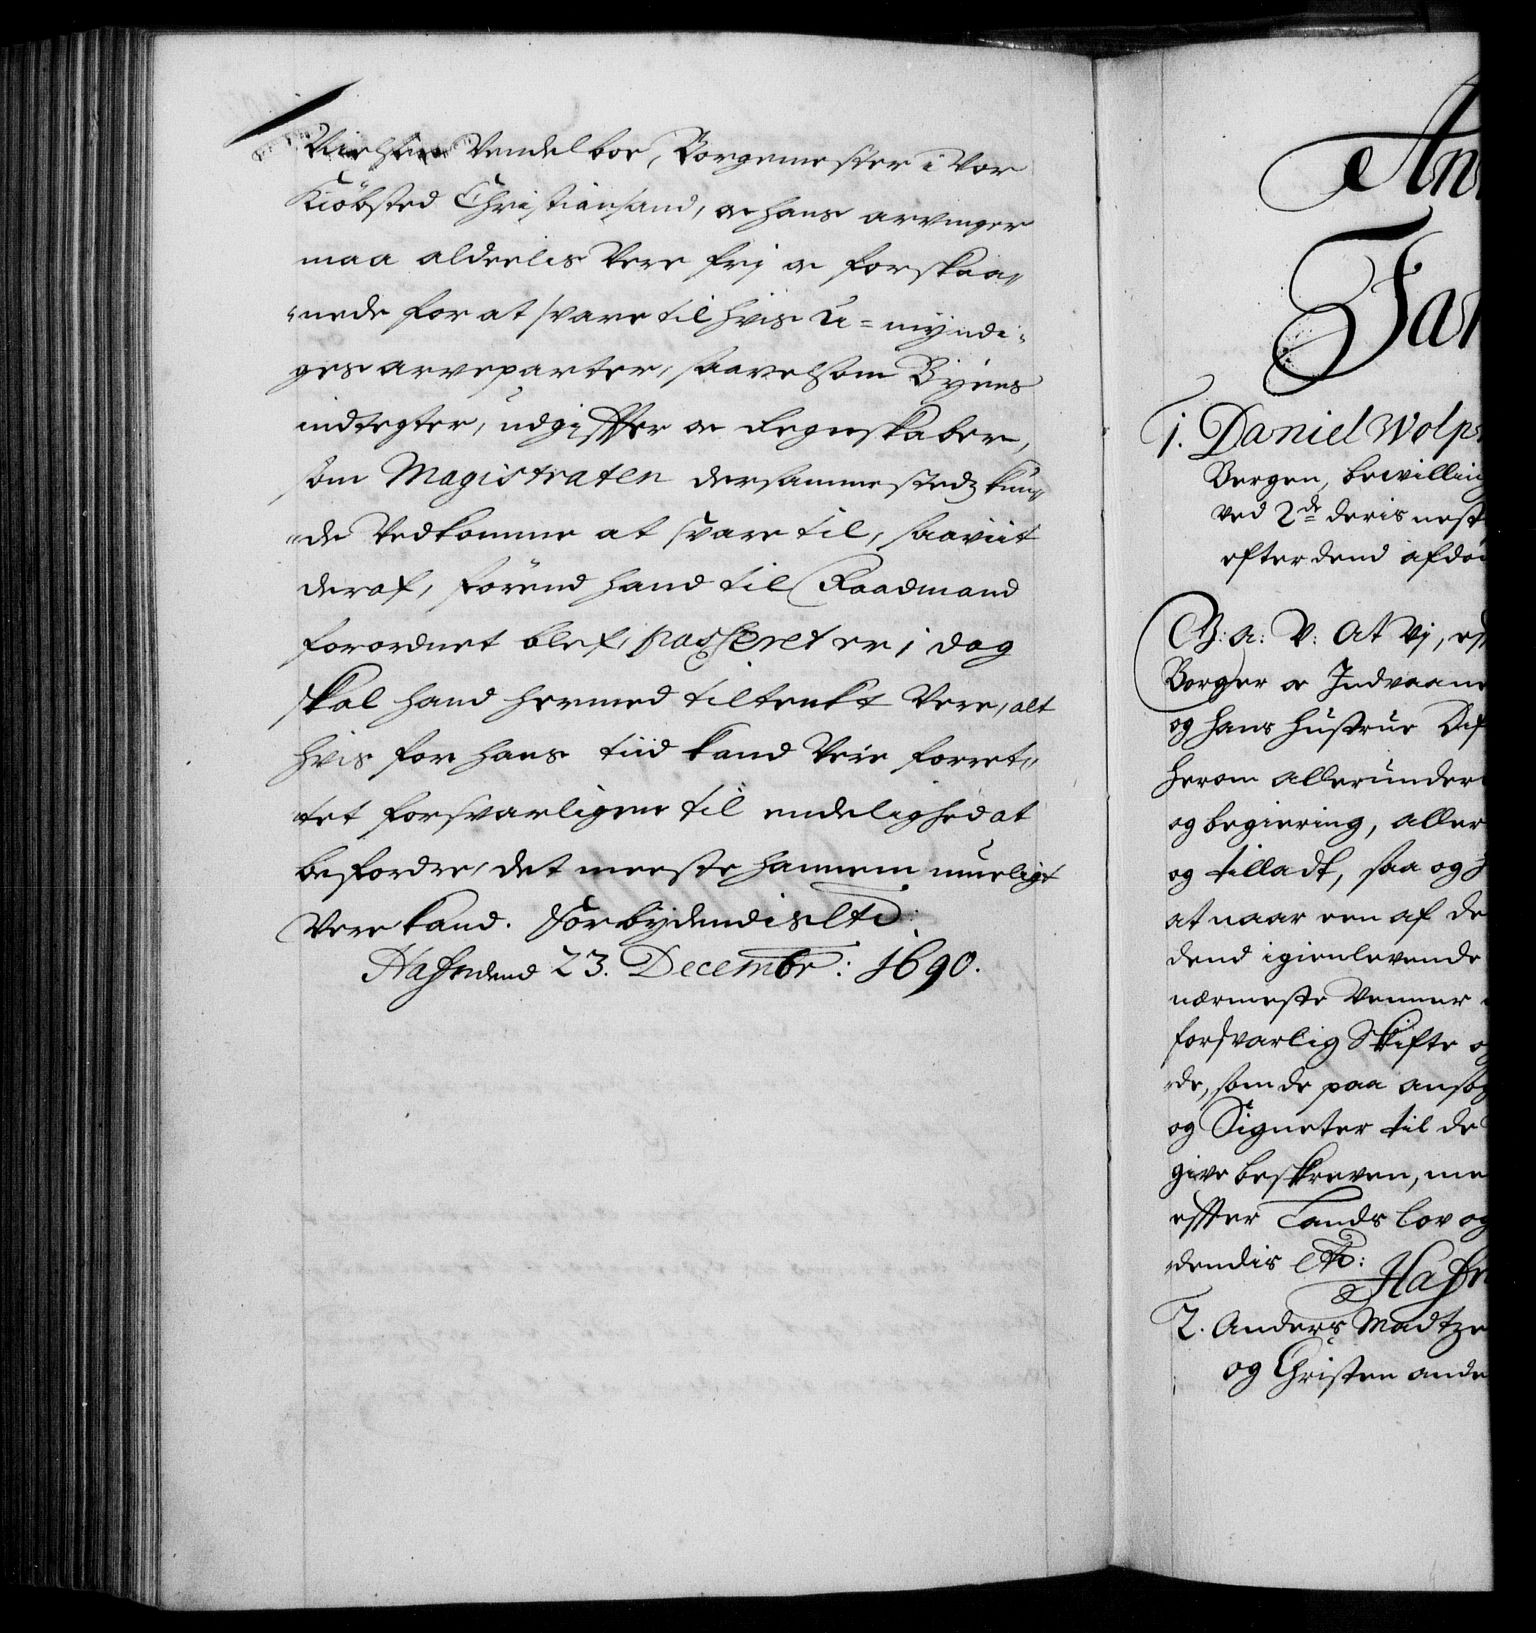 Nielsen Vendelboe, Borgemester i Vor
Kiöbsted Christiansand, oc hans arvinger
maa alderlis Vere frj oc forskaa„
„nede for at svare til hvis u=myndi„
ges arveparter, saavelsom Byens
indtegter, udgiffter oc Regnskaber,
som Magistraten dersammestedz kun„
„de Vedkomme at svare til, saaviit
deraf, förend hand til Raadmand
forordnet blef, passeret er, i dog
skal hand hermed tiltenkt Vere, alt
hvis for hans tiid kand Vere forret„
tet forsvarligen til endelighed at
befordre, det meeste hannem mueligt
Vere kand. Forbydendis etc:
Hafn dend 23. Decembr: 1690.
An
Jan
1. Daniel Wolp
Bergen, bewilling
ved 2de deris nest
efter dend afdö
G: A: V: At Vj, eft
Borger oc Indvaane
og hans hustrue
herom allerunder
og begiering, aller
og tilladt, saa og
at naar een af de
dend igienlevende
nærmeste Venner
forsvarlig Skifte og
„de, som de paa ansög
og Signeter til de
give beskreven, me
effter Lands lov og
„dendis etc: Hafn
2. Anders Madtze
og Christen ande